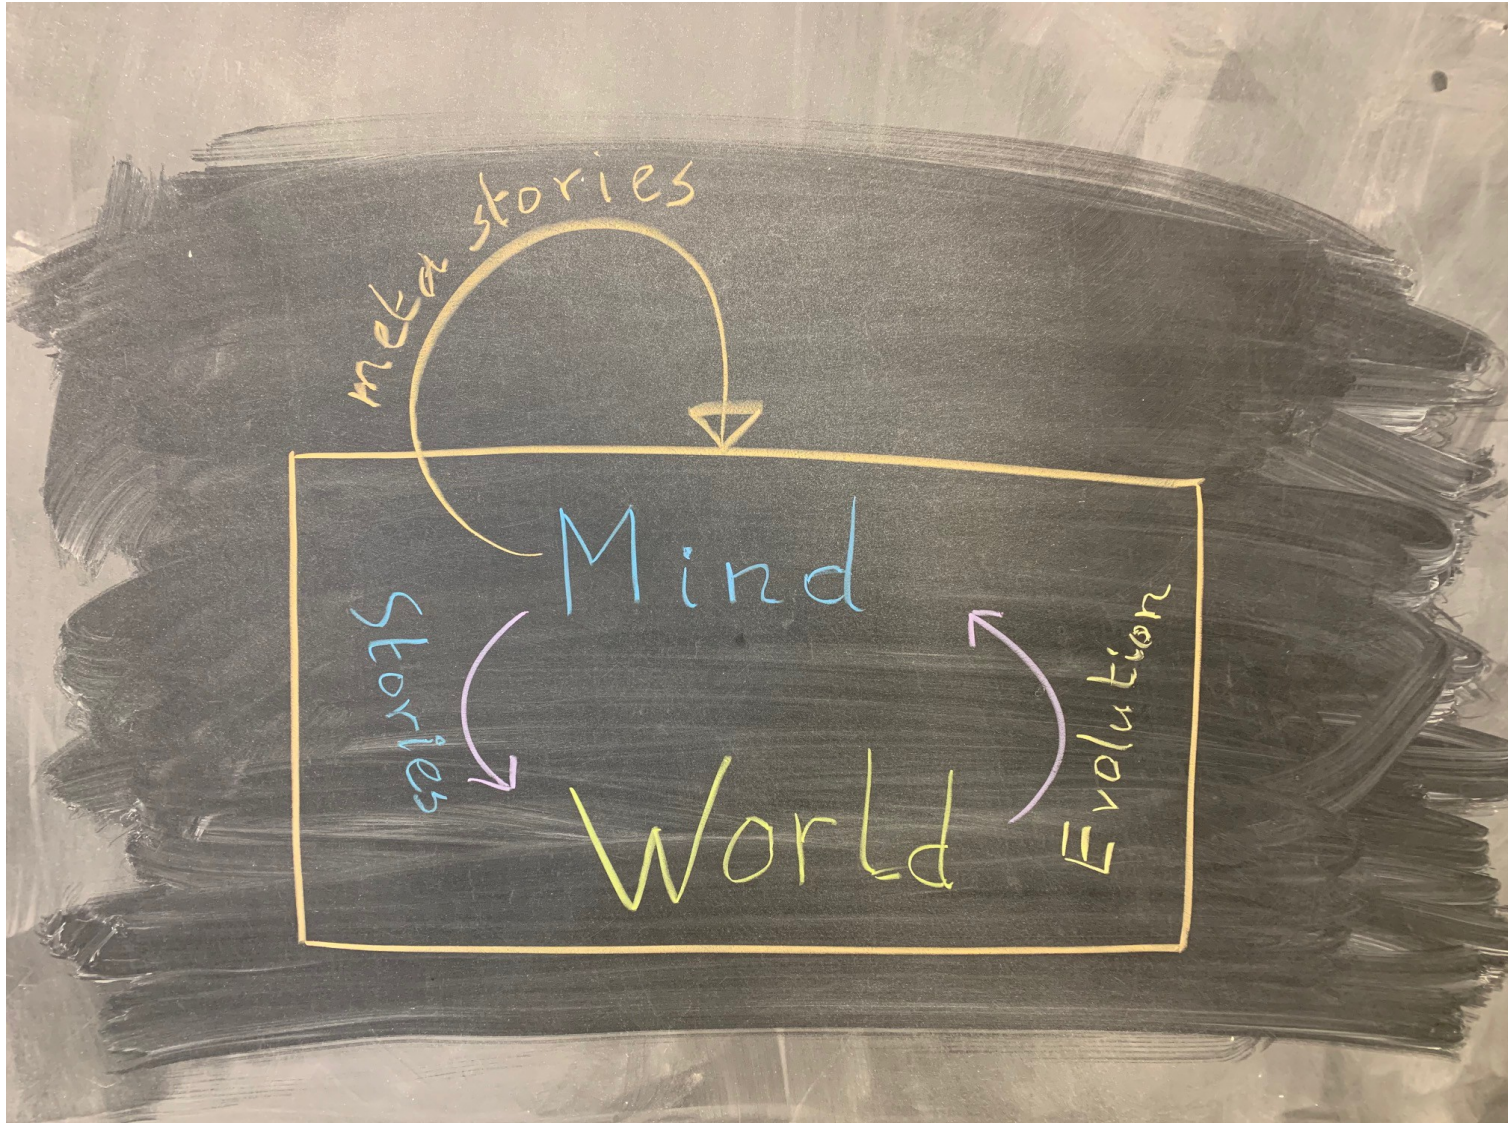 meta stories
Mind
Stories
Evolution
World